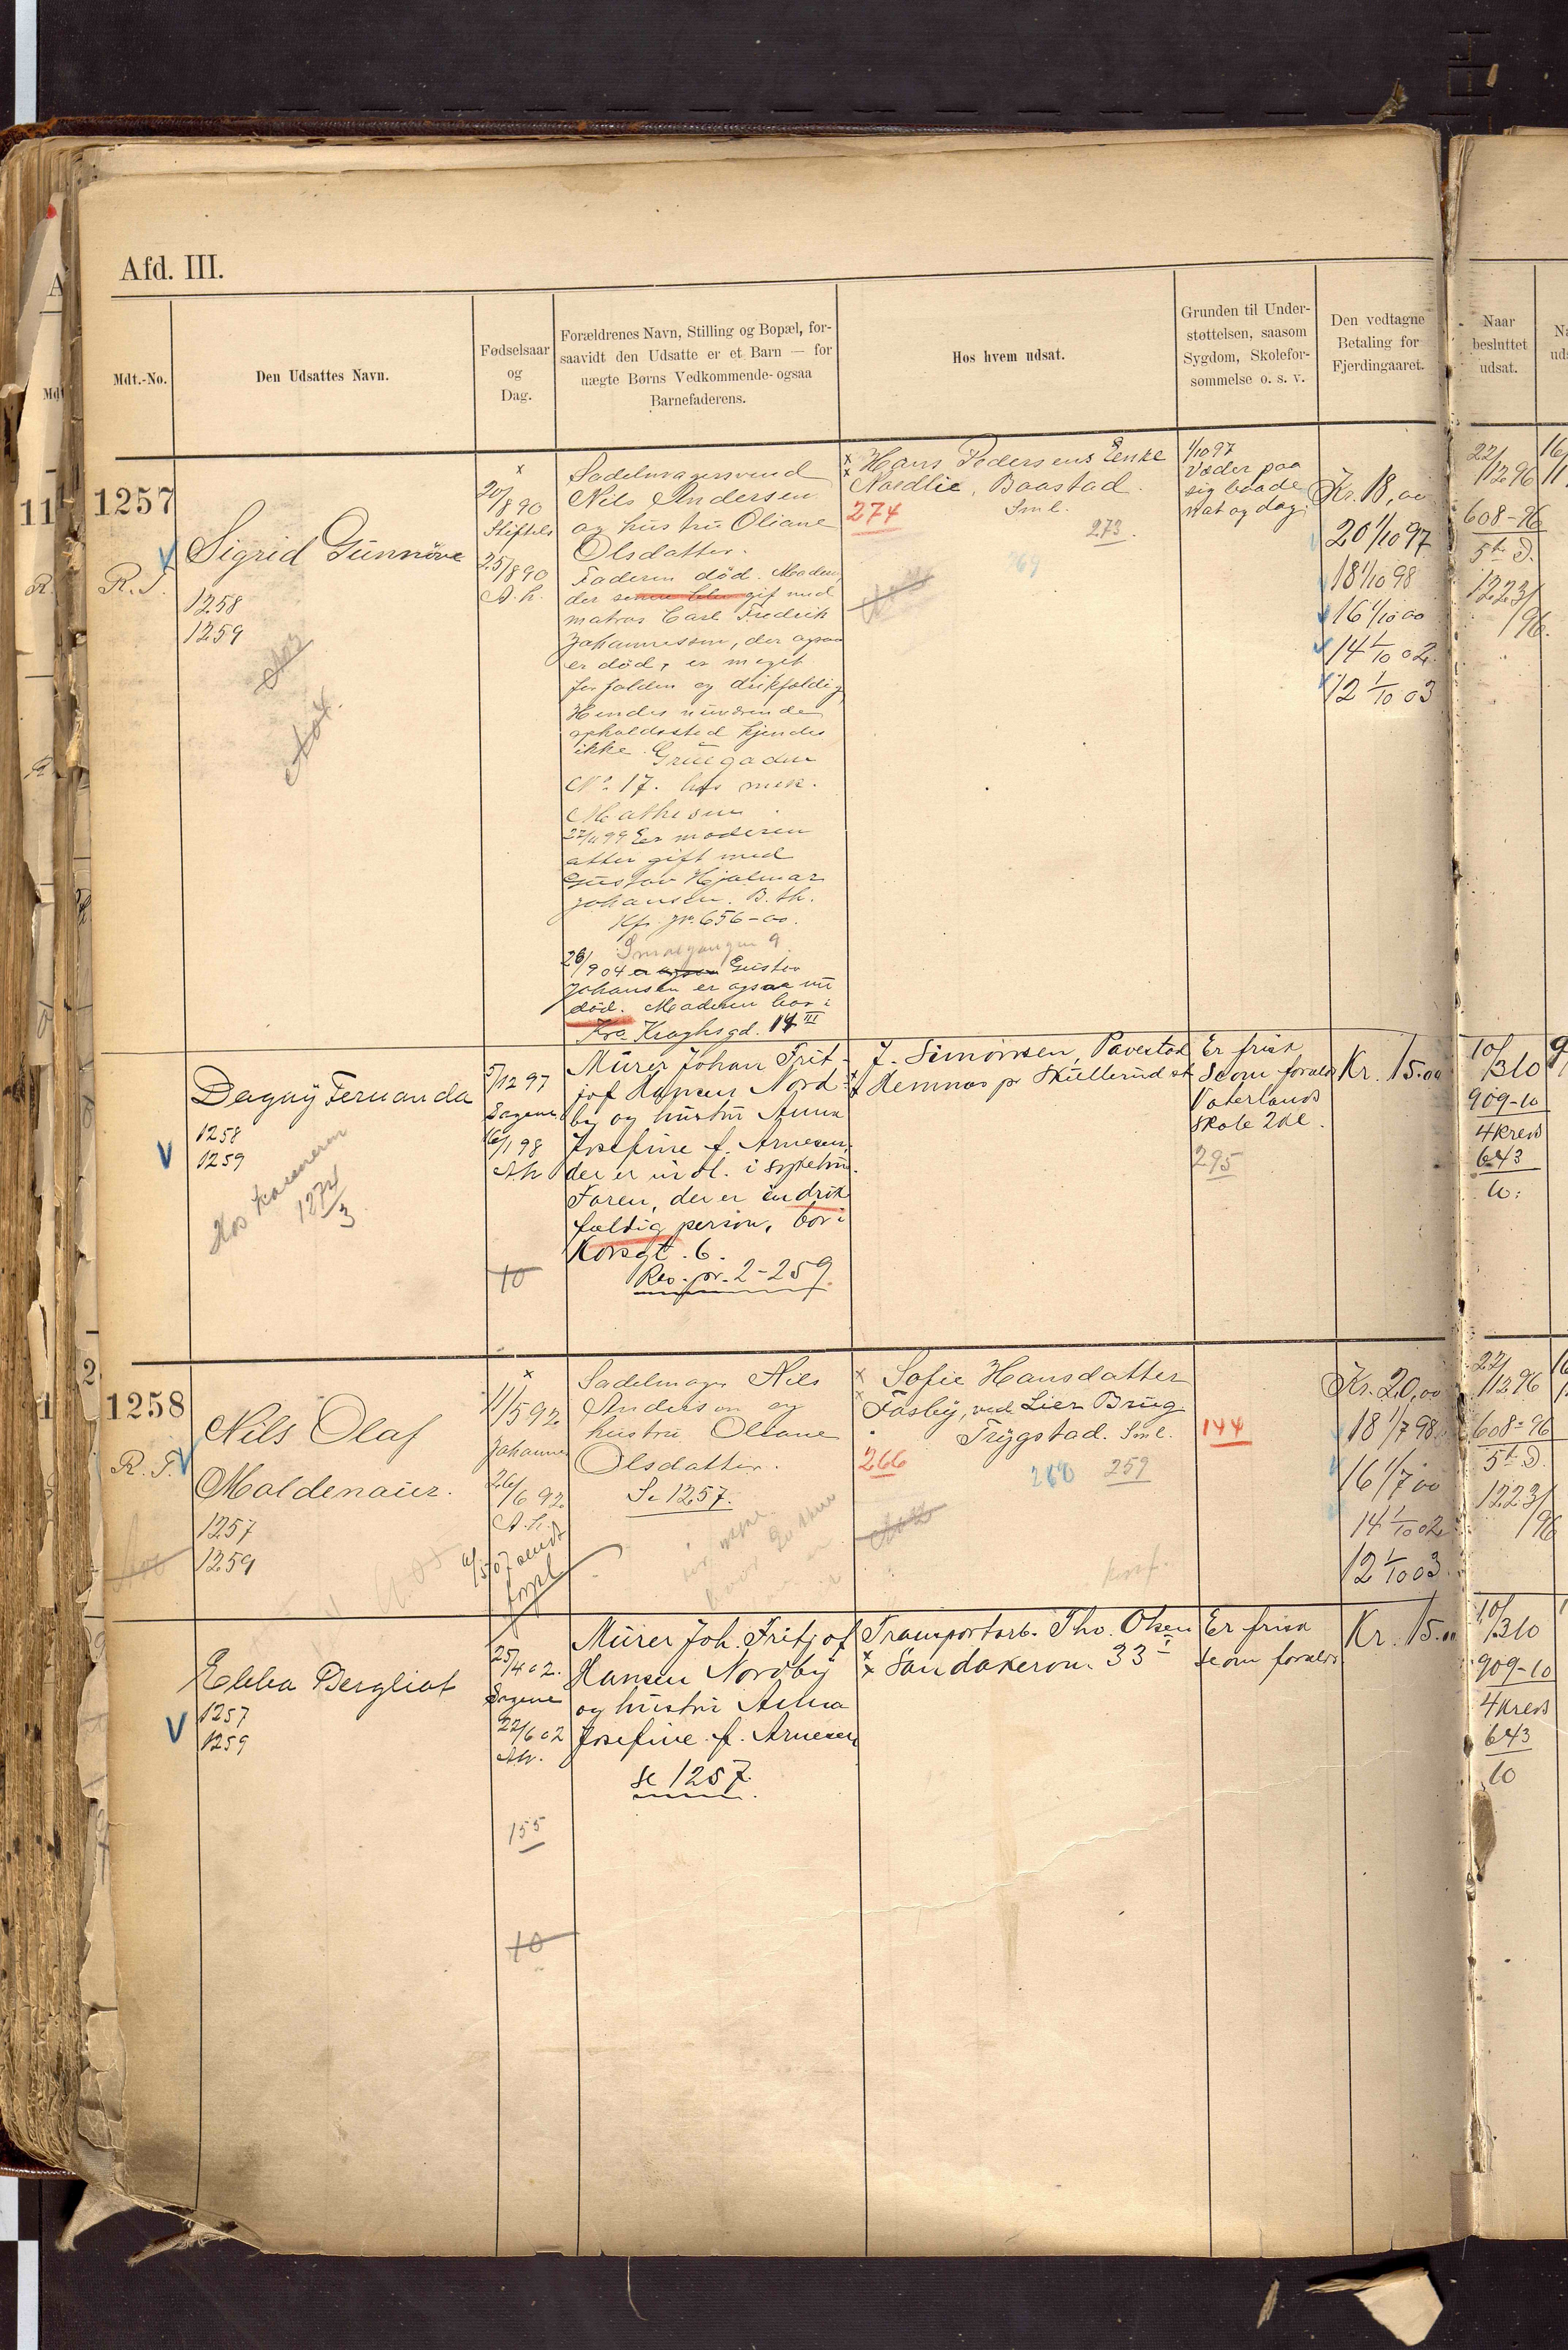 Afd. III.
Mdt.-No.
Den Udsattes Navn.
Fødselsaar
og
Dag.
Forældrenes Navn, Stilling og Bopæl, for-
saavidt den Udsatte er et Barn — for
uægte Børns Vedkommende-ogsaa
Barnefaderens.
Hos hvem udsat.
Grunden til Under-
støttelsen, saasom
Sygdom, Skolefor-
sømmelse o. s. v.
Den vedtagne
Betaling for
Fjerdingaaret.
Naar
besluttet
udsat.
1257
R. T.
Sigrid Gunnöve
1258
1259
x
20/8 90
Stiftels
25/8 90
A. h.
Sadelmagersvend
Nils Andersen
og hustru Oliane
Olsdatter.
Faderen død. Moderen,
der senere blev gift med
matros Carl Fredrik
Johannessen, der ogsaa
er död, er meget
forfalden og drikfældig
Hendes nuværende
opholdssted kjendes
ikke. Grüegaden
No 17. hos mek.
Mathisen
27/11 99 Er moderen
atter gift med
Gustav Hjalmar
Johansen. B. th.
Kfr. jr. 656-00.
Smalgangen 9
26/9 04 er ogsaa Gustav
Johansen er ogsaa nu
död. Moderen bor i
Kra Kroghsgd. 14 III
x Hans Pedersens Enke
x Nordlie, Baastad.
Sml.
274
273.
269
1/10 97
Væder paa
sig baade
nat og dag.
Kr. 18,00
20 1/10 97
18 1/10 98
16 1/10 00
14 1/10 02.
12 1/10 03
22/12 96
608-96
5te D.
1223/96.
Dagny Fernanda
1258
1259
Hos kasereren
1274/3
5/12 97
Sagene
16/1 98
A.h
10
Mürer Johan Frit-
jof Hansen Nord-
by og hustru Anna
Josefine f. Arnesen,
der er indl. i sykehus.
Faren, der er en drik
fældig person, bor i
Korsgt. 6.
Rev. pr. 2-259
J. Simonsen, Pavestad
x Hemnæs pr Skullerud st
Er frisk
Se om foræld
Vaterlands
skole 2 kl.
295
Kr. 15.00
10/3 10
909-10
4 kreds
643
10:
1258
R. T.
Nils Olaf
Maldenaür.
1257
1259
x
11/5 92
Johannes
26/6 92
A. h.
Sadelmager Nils
Anderson og
hustru Oliane
Olsdatter.
Se 1257.
x Sofie Hansdatter
x Fosby, ved Lier Brug
Trygstad. Sml.
266
268
259
144
Kr. 20,00
18 1/7 98
16 1/7 00
14 1/10 02
12 1/10 03
22/12 96
608-96
5te D.
1223/96
Ebba Bergliot
1257
1259
25/4 02.
Sagene
22/6 02
A.h.
155
10
Mürer Joh. Fritjof
Hansen Nordby
og hustru Anna
Josefine f. Arnesen
Se 1257.
Transportarb. Tho. Olsen
x Sandakervn. 33 I
Er frisk
Se om foræld
Kr. 15.00
10/3 10
909-10
4 kreds
643
10